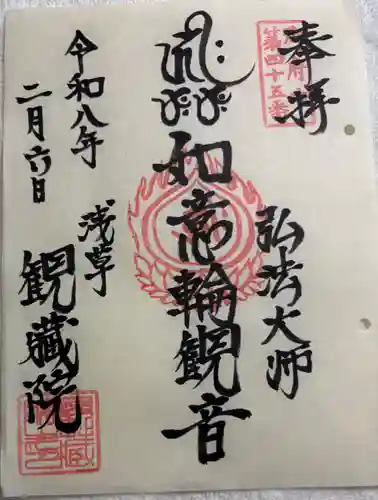 奉拝
第四十五番
弘法大師
如意輪観音
浅草
観蔵院
令和八年
二月六日